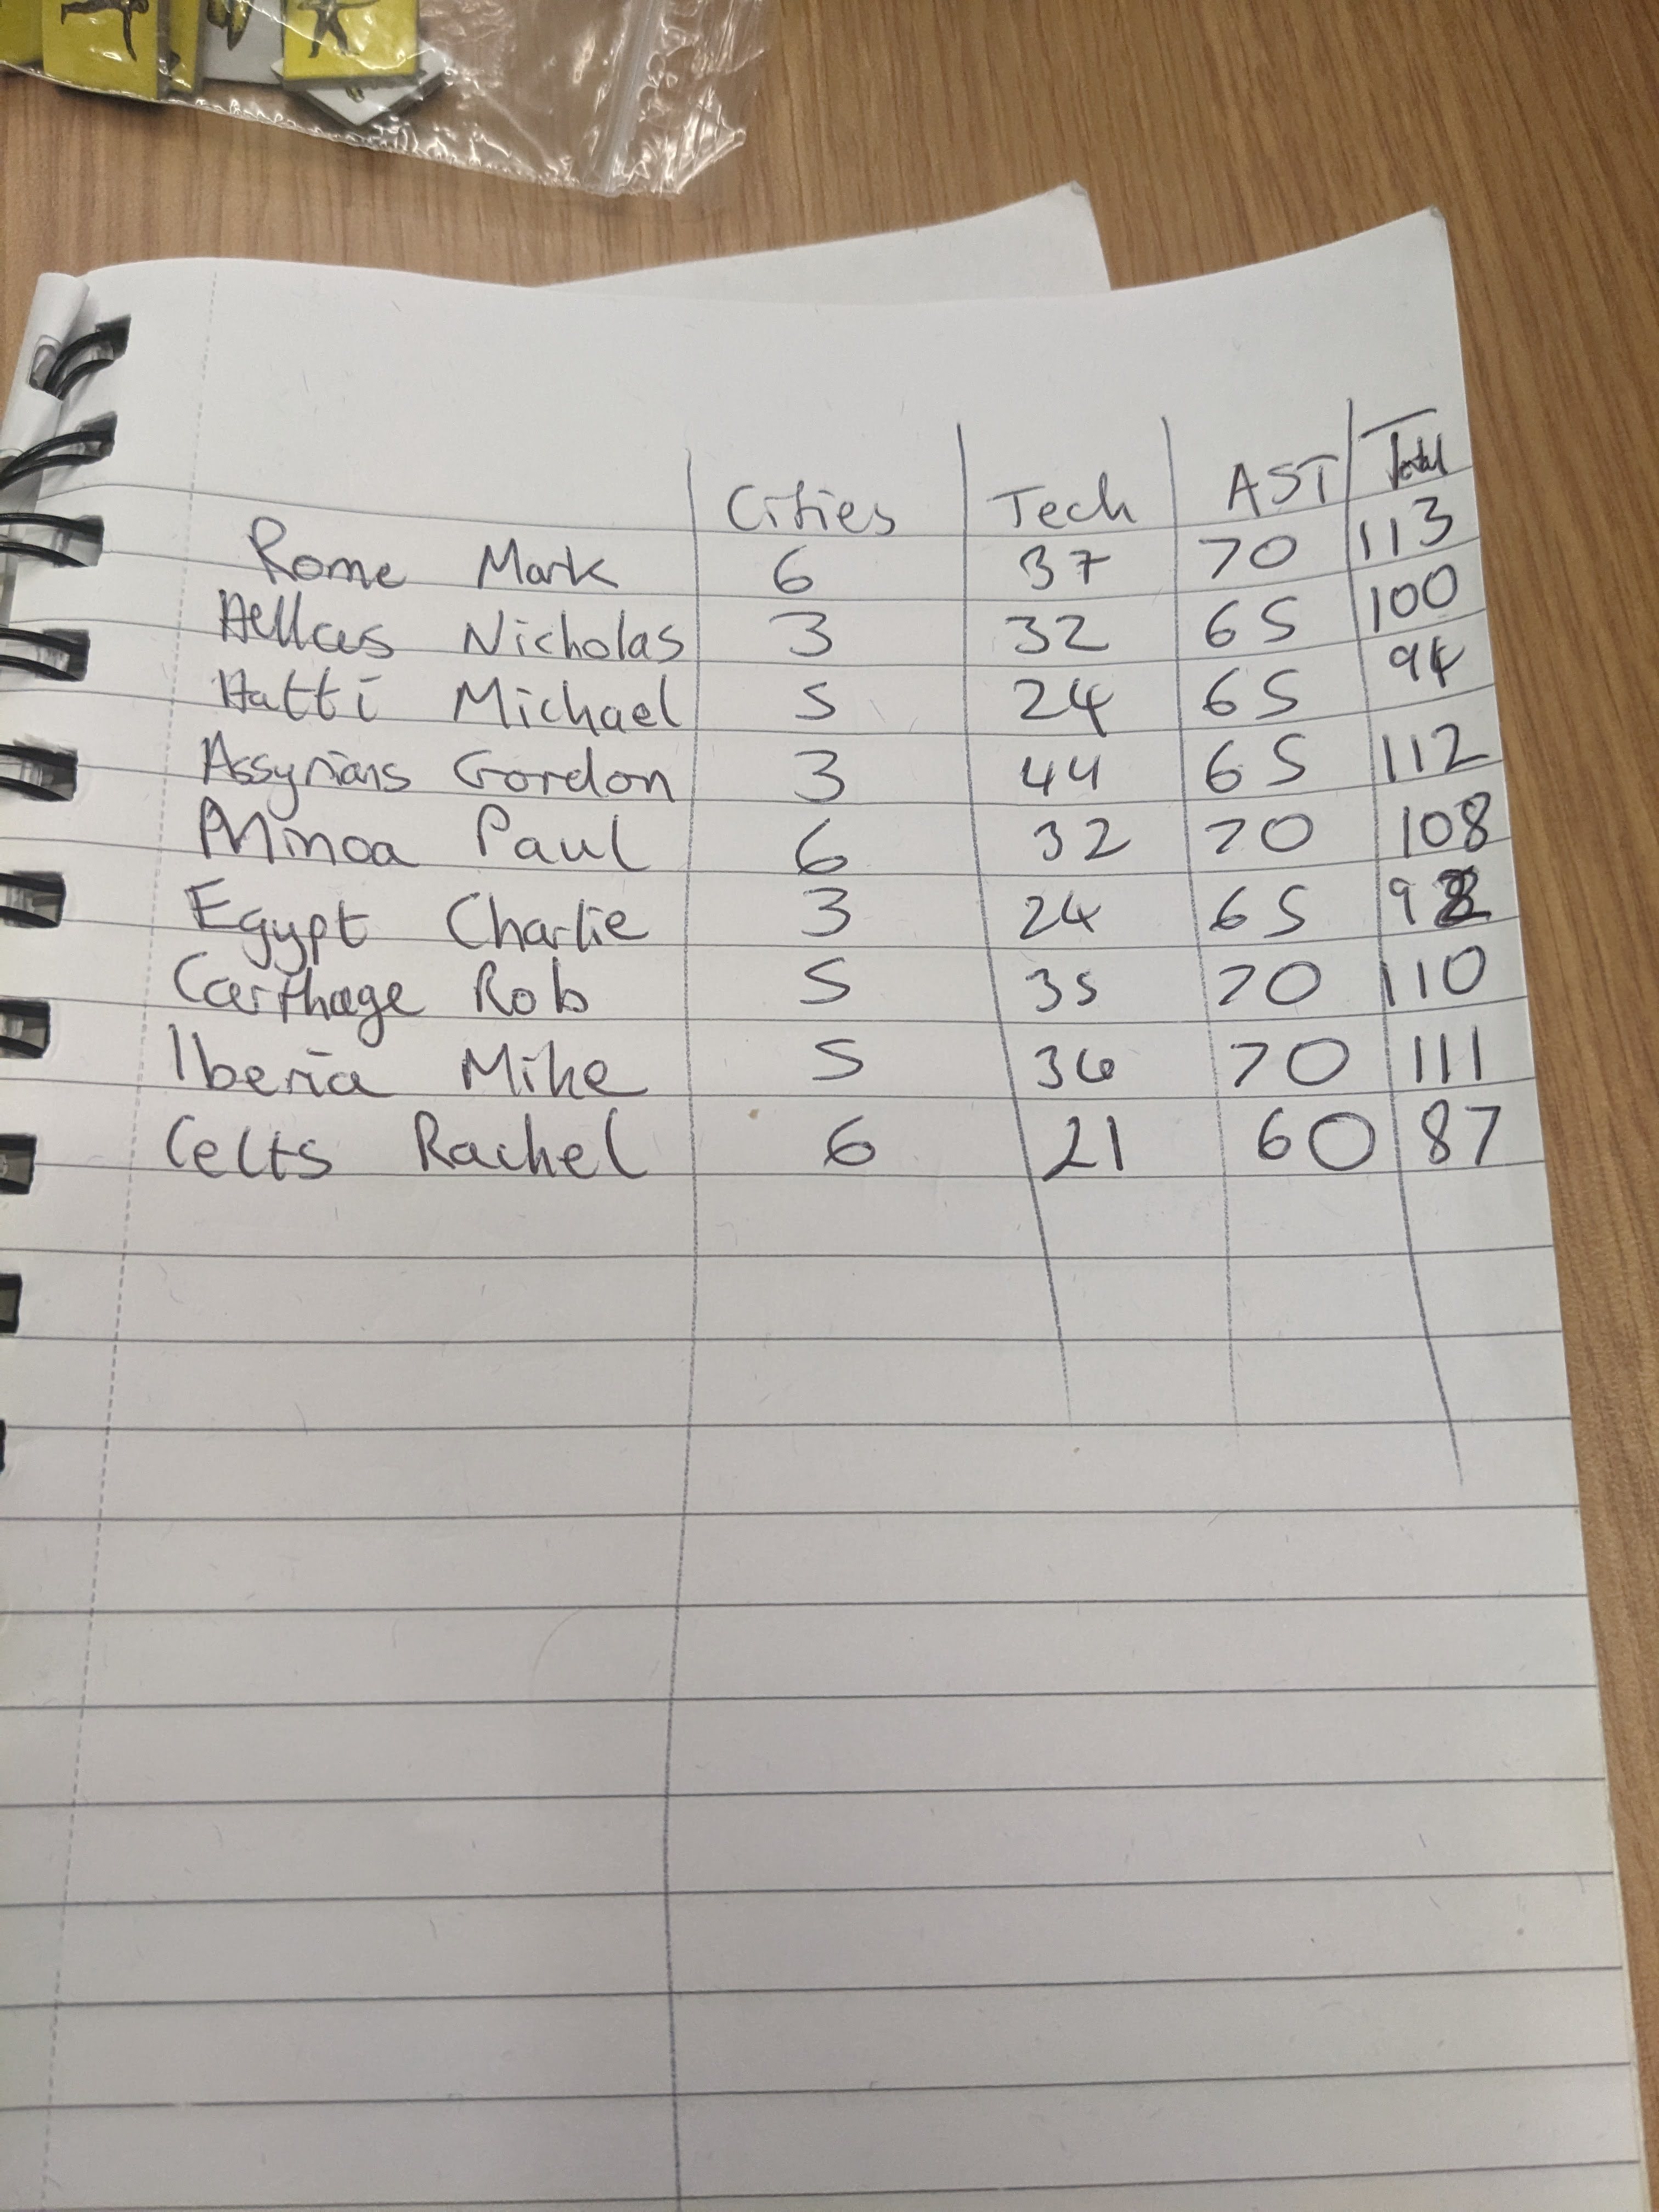 Cities Tech AST Total
Rome Mark 6 37 70 113
Hellas Nicholas 3 32 65 100
Hatti Michael 5 24 65 94
Assyrians Gordon 3 44 65 112
Minoa Paul 6 32 70 108
Egypt Charlie 3 24 65 92
Carthage Rob 5 35 70 110
Iberia Mike 5 36 70 111
Celts Rachel 6 21 60 87